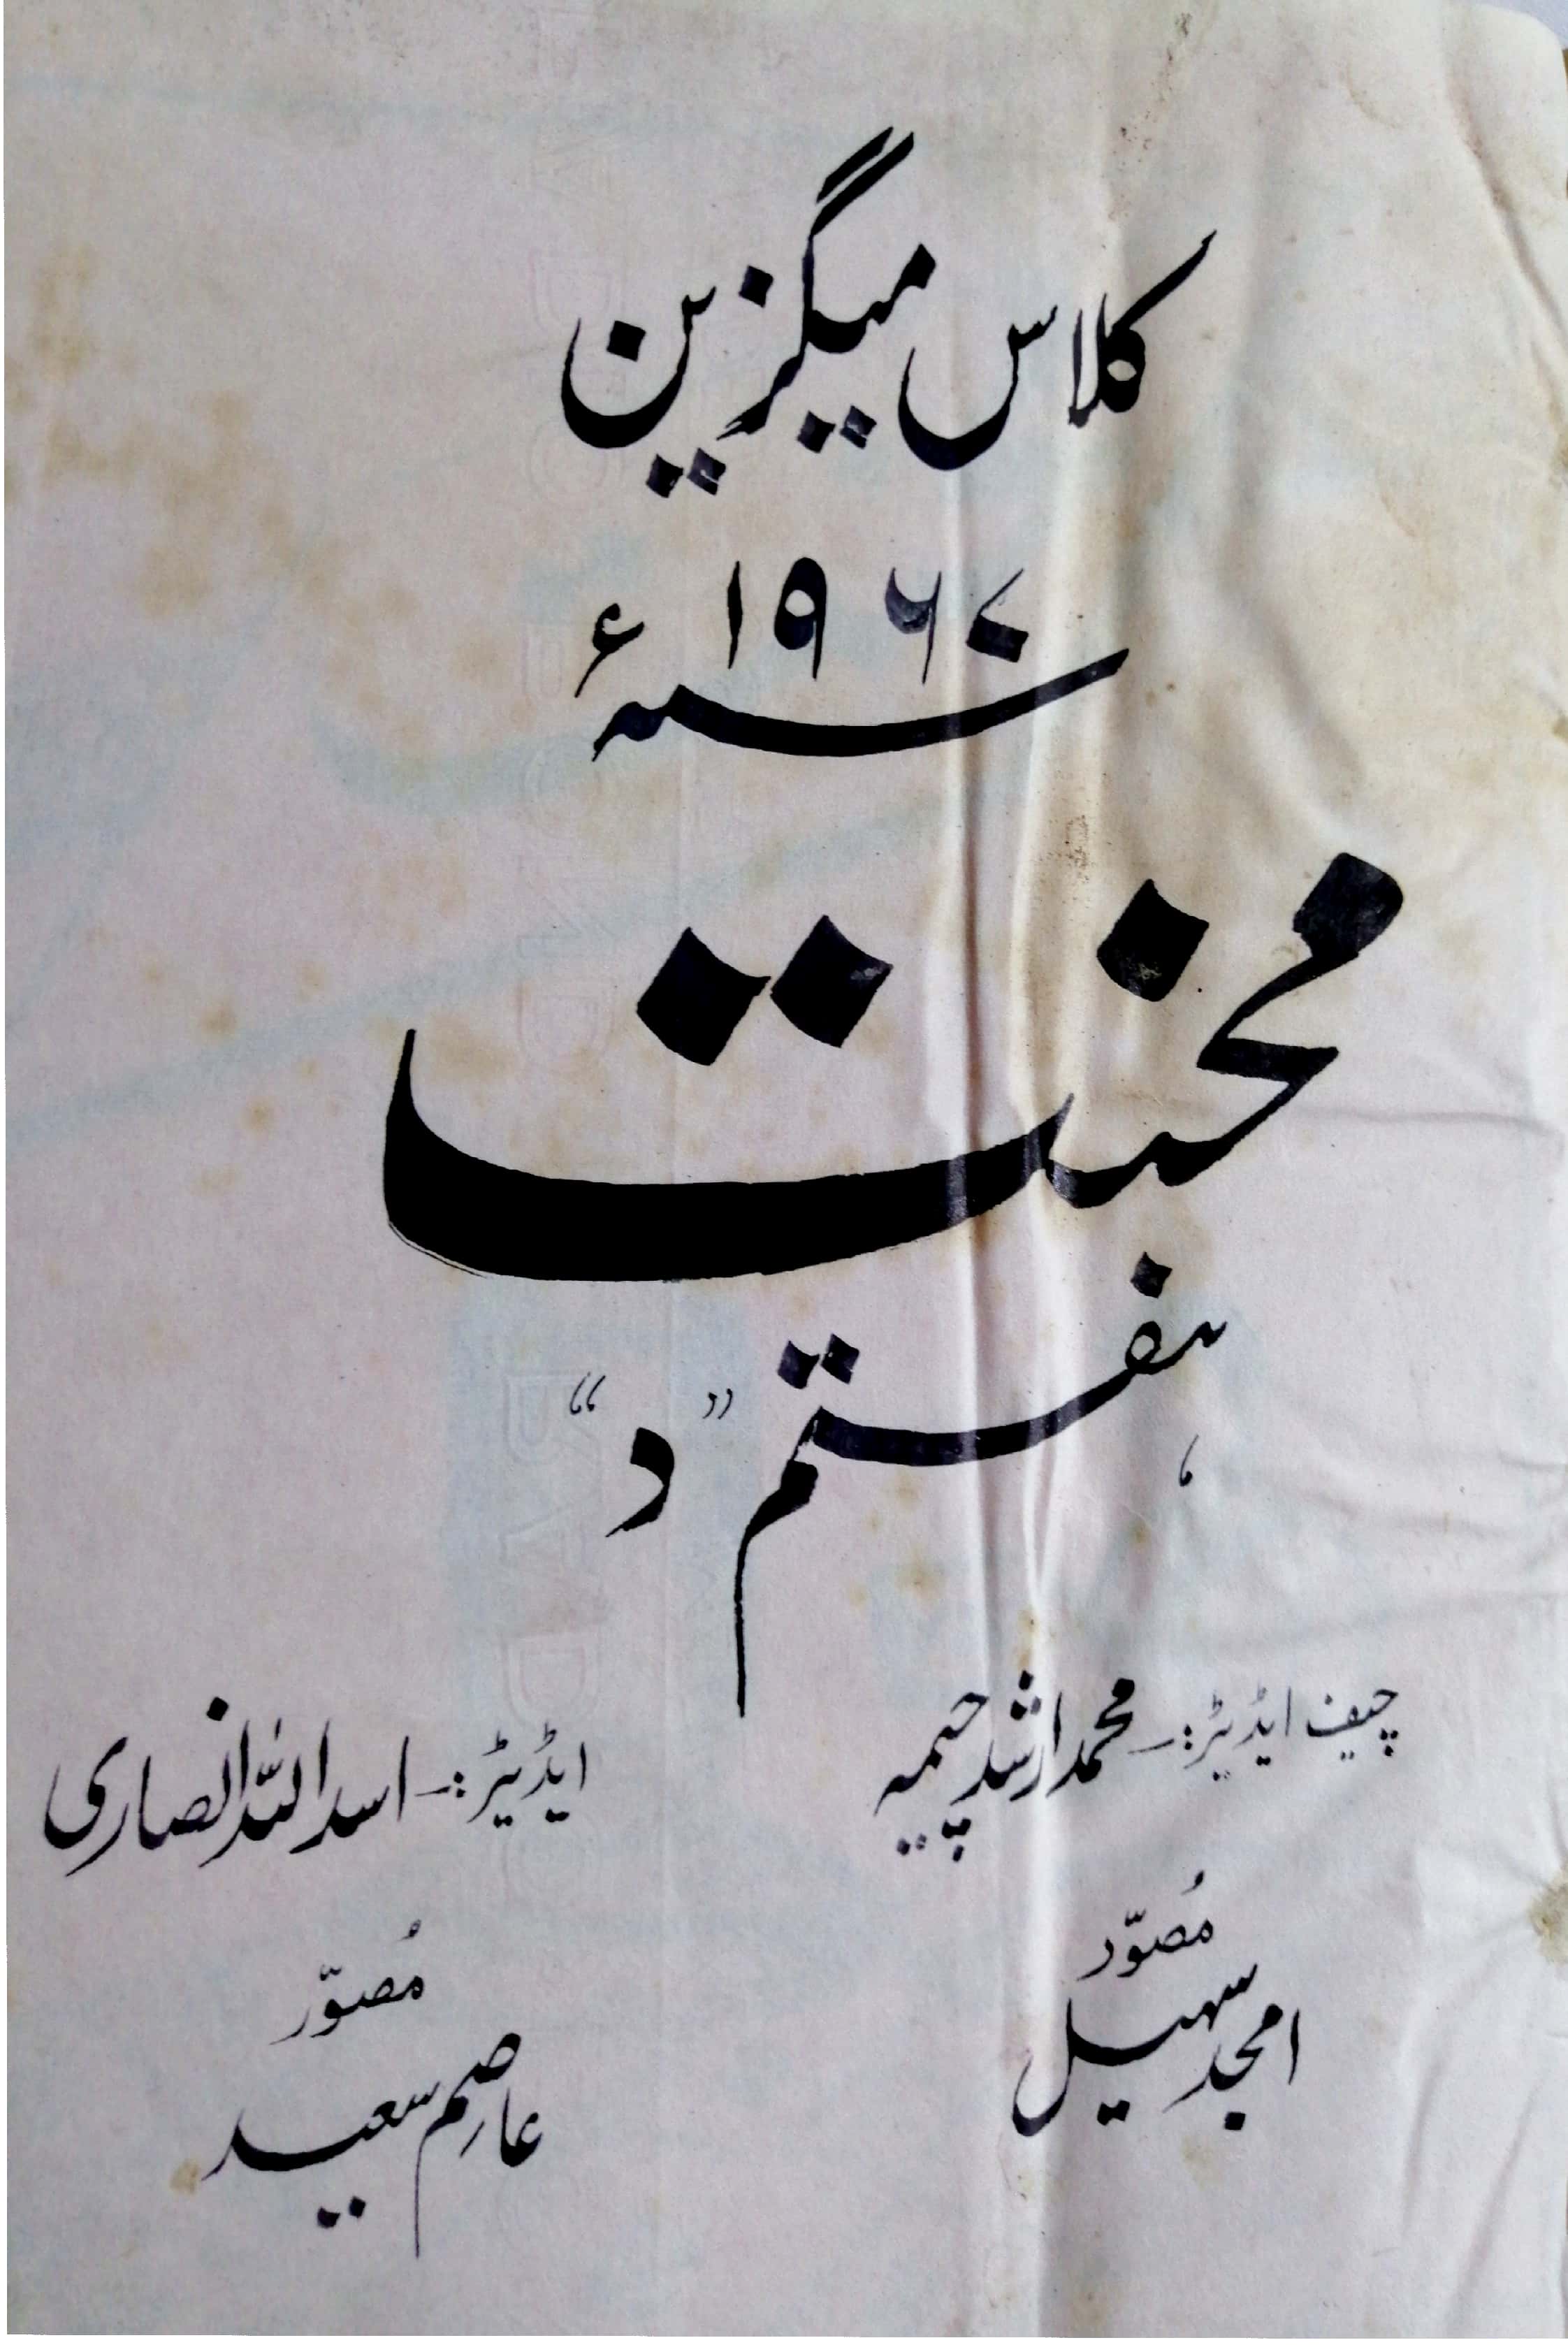 کلاس میگزین
سنہ ۱۹۶۷ء
محنت
ہفتم ”د“
چیف ایڈیٹر:۔ محمد ارشد چیمہ
ایڈیٹر:۔ اسد اللہ انصاری
مُصوّر
امجد سہیل
مُصوّر
عاصم سعید